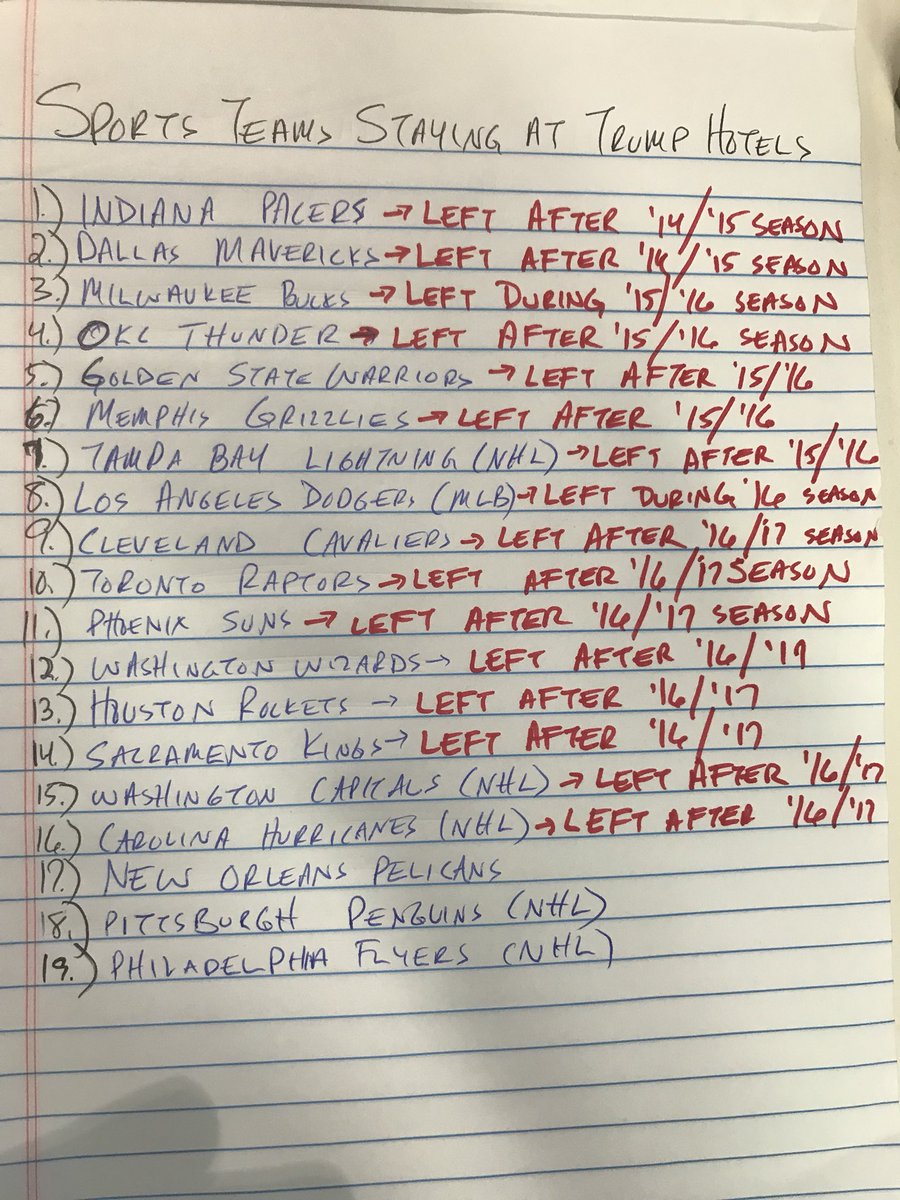 SPORTS TEAMS STAYING AT TRUMP HOTELS
1.) INDIANA PACERS → LEFT AFTER '14/'15 SEASON
2.) DALLAS MAVERICKS → LEFT AFTER '14/'15 SEASON
3.) MILWAUKEE BUCKS → LEFT DURING '15/'16 SEASON
4.) OKC THUNDER → LEFT AFTER '15/'16 SEASON
5.) GOLDEN STATE WARRIORS → LEFT AFTER '15/'16
6.) MEMPHIS GRIZZLIES → LEFT AFTER '15/'16
7.) TAMPA BAY LIGHTNING (NHL) → LEFT AFTER '15/'16
8.) LOS ANGELES DODGERS (MLB) → LEFT DURING '16 SEASON
9.) CLEVELAND CAVALIERS → LEFT AFTER '16/17 SEASON
10.) TORONTO RAPTORS → LEFT AFTER '16/'17 SEASON
11.) PHOENIX SUNS → LEFT AFTER '16/'17 SEASON
12.) WASHINGTON WIZARDS → LEFT AFTER '16/'19
13.) HOUSTON ROCKETS → LEFT AFTER '16/'17
14.) SACRAMENTO KINGS → LEFT AFTER '16/'17
15.) WASHINGTON CAPITALS (NHL) → LEFT AFTER '16/'17
16.) CAROLINA HURRICANES (NHL) → LEFT AFTER '16/'17
17.) NEW ORLEANS PELICANS
18.) PITTSBURGH PENGUINS (NHL)
19.) PHILADELPHIA FLYERS (NHL)